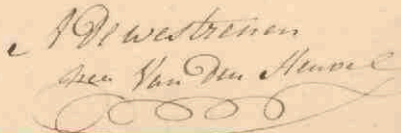 A De westrenen
nee Van Den Heuvel